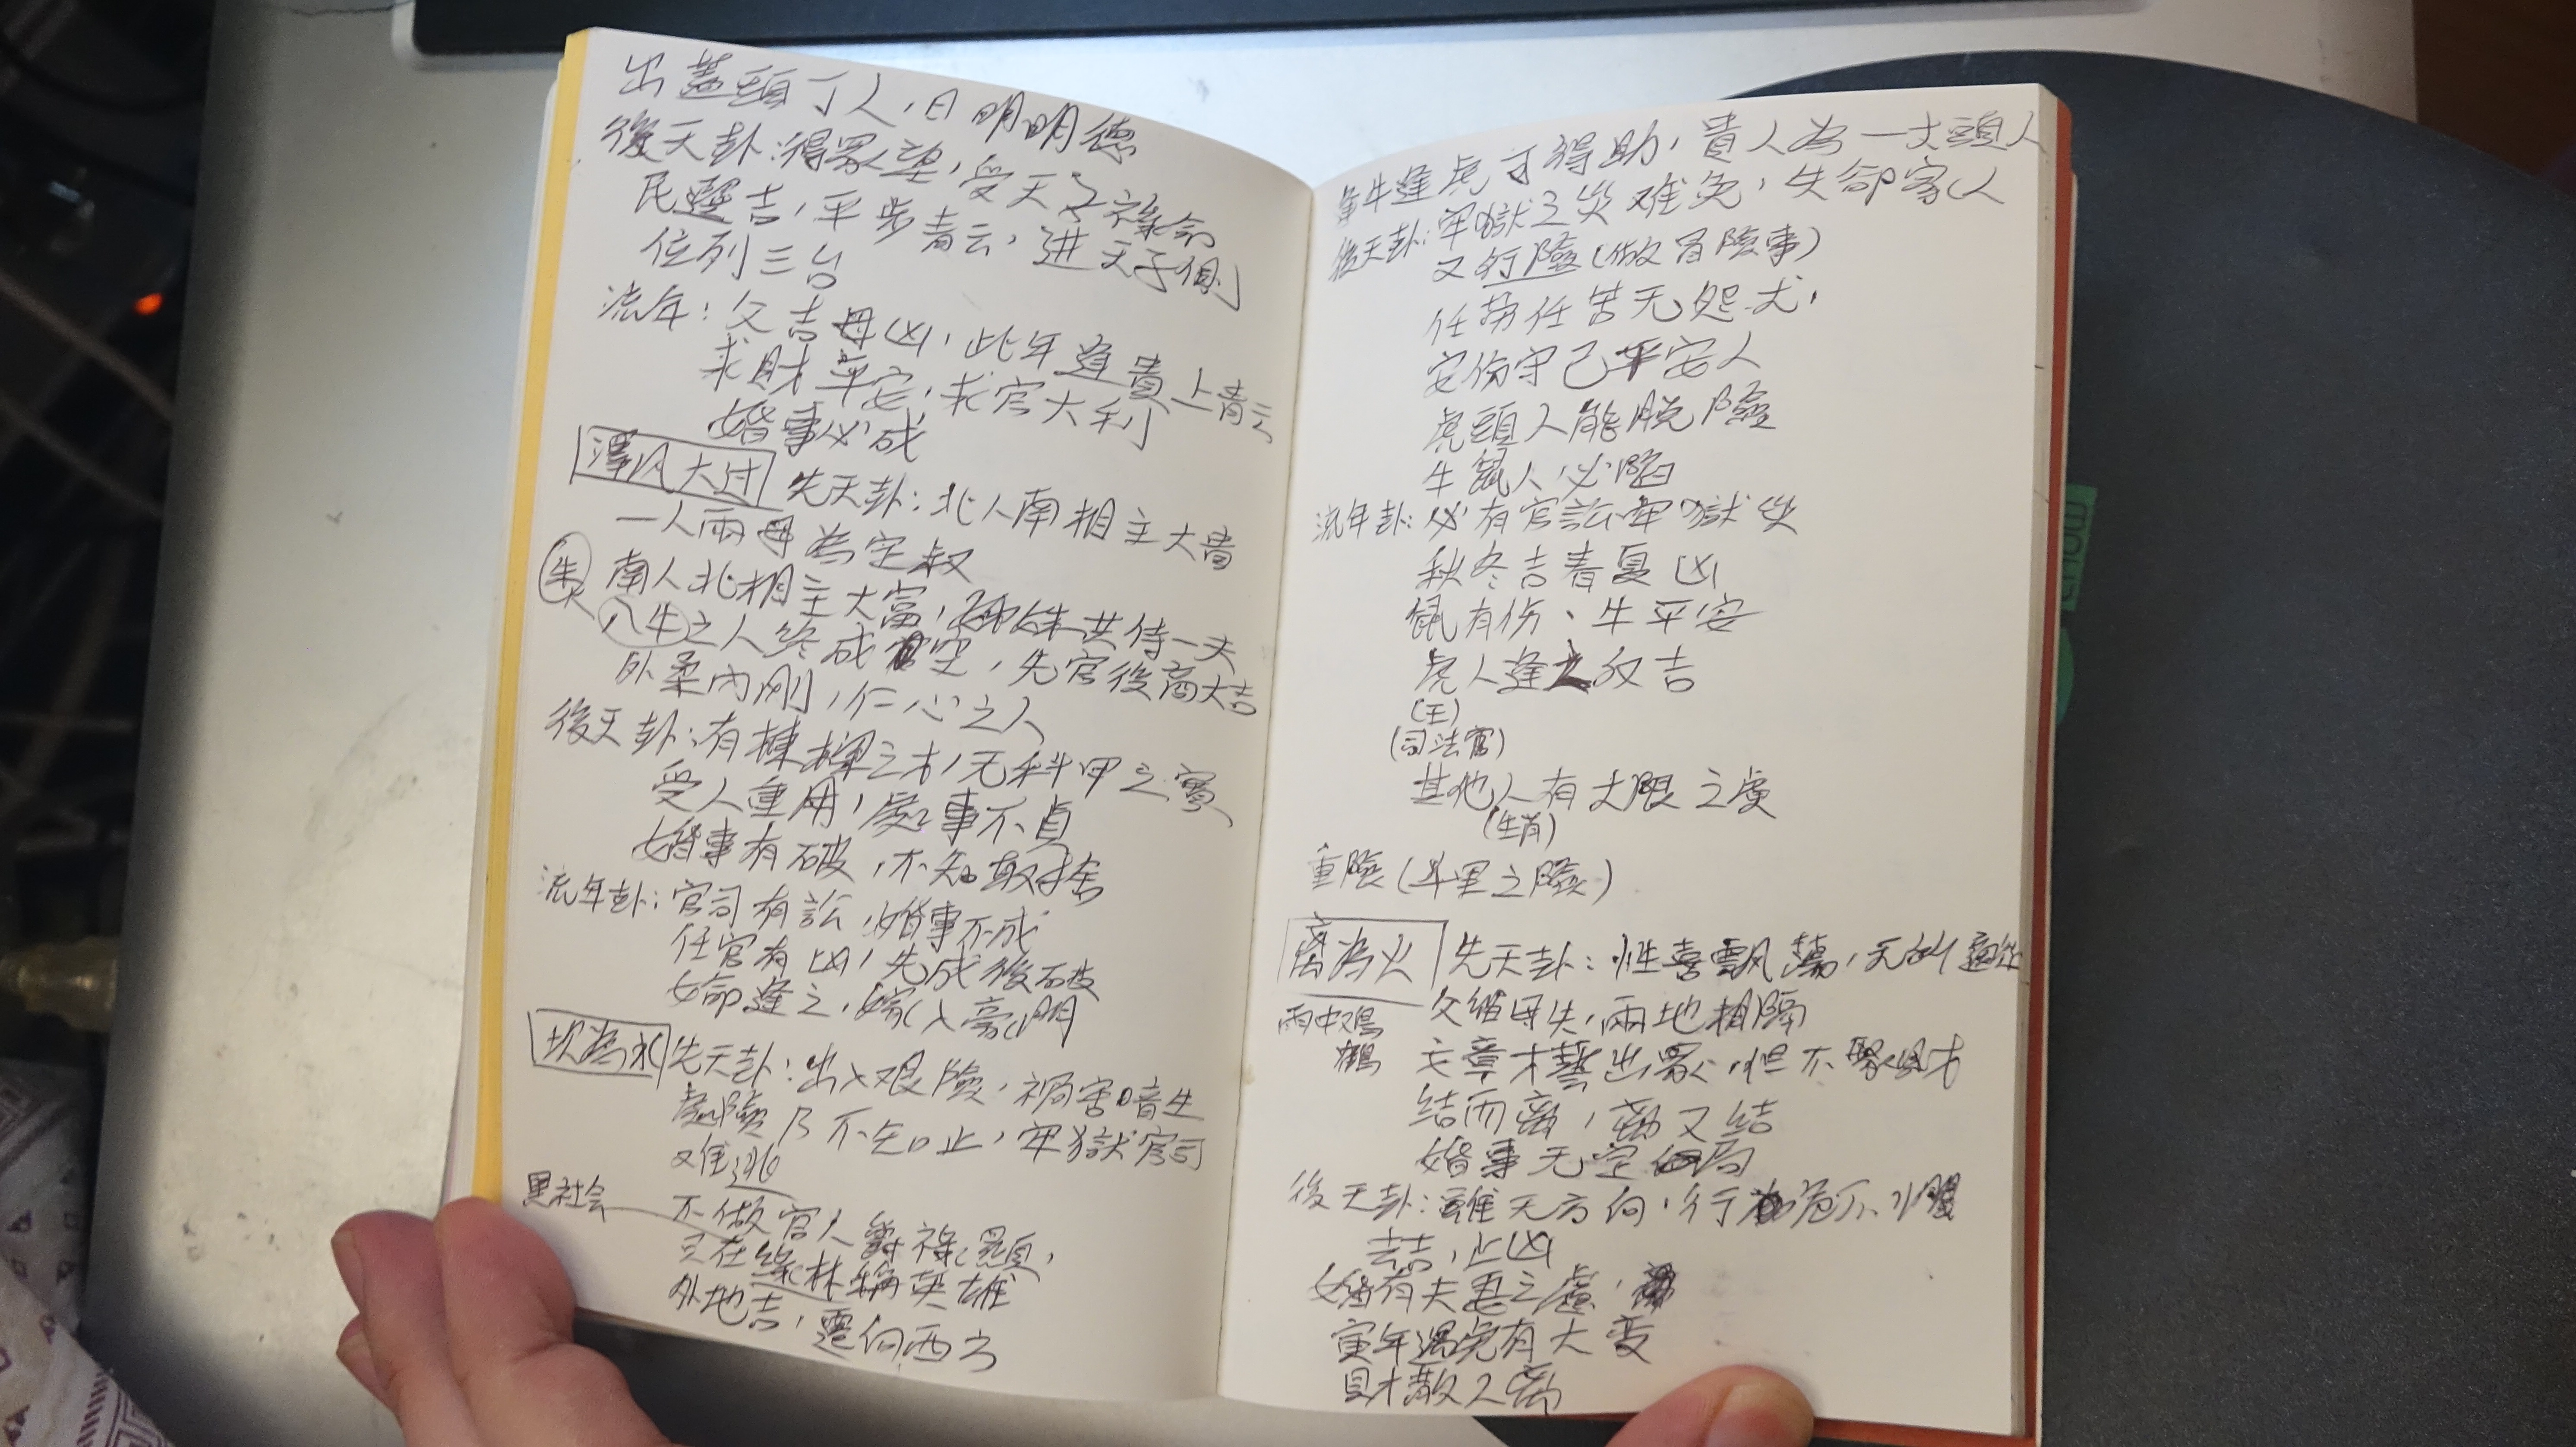 出蓋頭丁人，日明明德
後天卦：得眾望，受天子祿命
民 吉，平步青云，進天子側
位列三台
流年：父吉母凶，此年逢貴上青云
求財平安，求官大利
婚事必成
澤风大过 先天卦：北人南相主大貴
一人兩母為定叔
朱 南人北相主大富， 共侍一夫
八牛之人終成 空，先官後商大吉
外柔內刚，仁心之人
後天卦：有棟樑之才，无科甲之實
受人重用，處事不貞
婚事有破，不知取捨
流年卦：官司有訟，婚事不成
任官有凶，先成後破
女命逢之，嫁入豪門
坎為水 先天卦：出入艰險，禍害暗生
處險乃不知止，牢獄官司
又难逃
黑社会
不做官人爵祿顯，
只在綠林稱英雄
外地吉，遷向西方
牛逢虎可得助，貴人為一大頭人
後天卦：牢獄之災难免，失卻家人
又行險（做冒險事）
任劳任苦无怨尤，
安份守己平安人
虎頭人能脱險
牛鼠人必陷
流年卦：必有官訟牢獄災
秋冬吉春夏凶
鼠有伤、牛平安
虎人逢之 吉
（王）
（司法官）
其他人有大限之虞
（生肖）
重險（斗里之險）
離為火 先天卦：性喜飄蕩，无所適從
雨中鳥 父缩母失，兩地相隔
鶴 文章才藝出眾，但不聚財
结而離，離又结
婚事无定局
後天卦：雖无方向，行危不懼
去吉，止凶
婚有夫妻之慮，
寅年遇虎有大变
財散人離